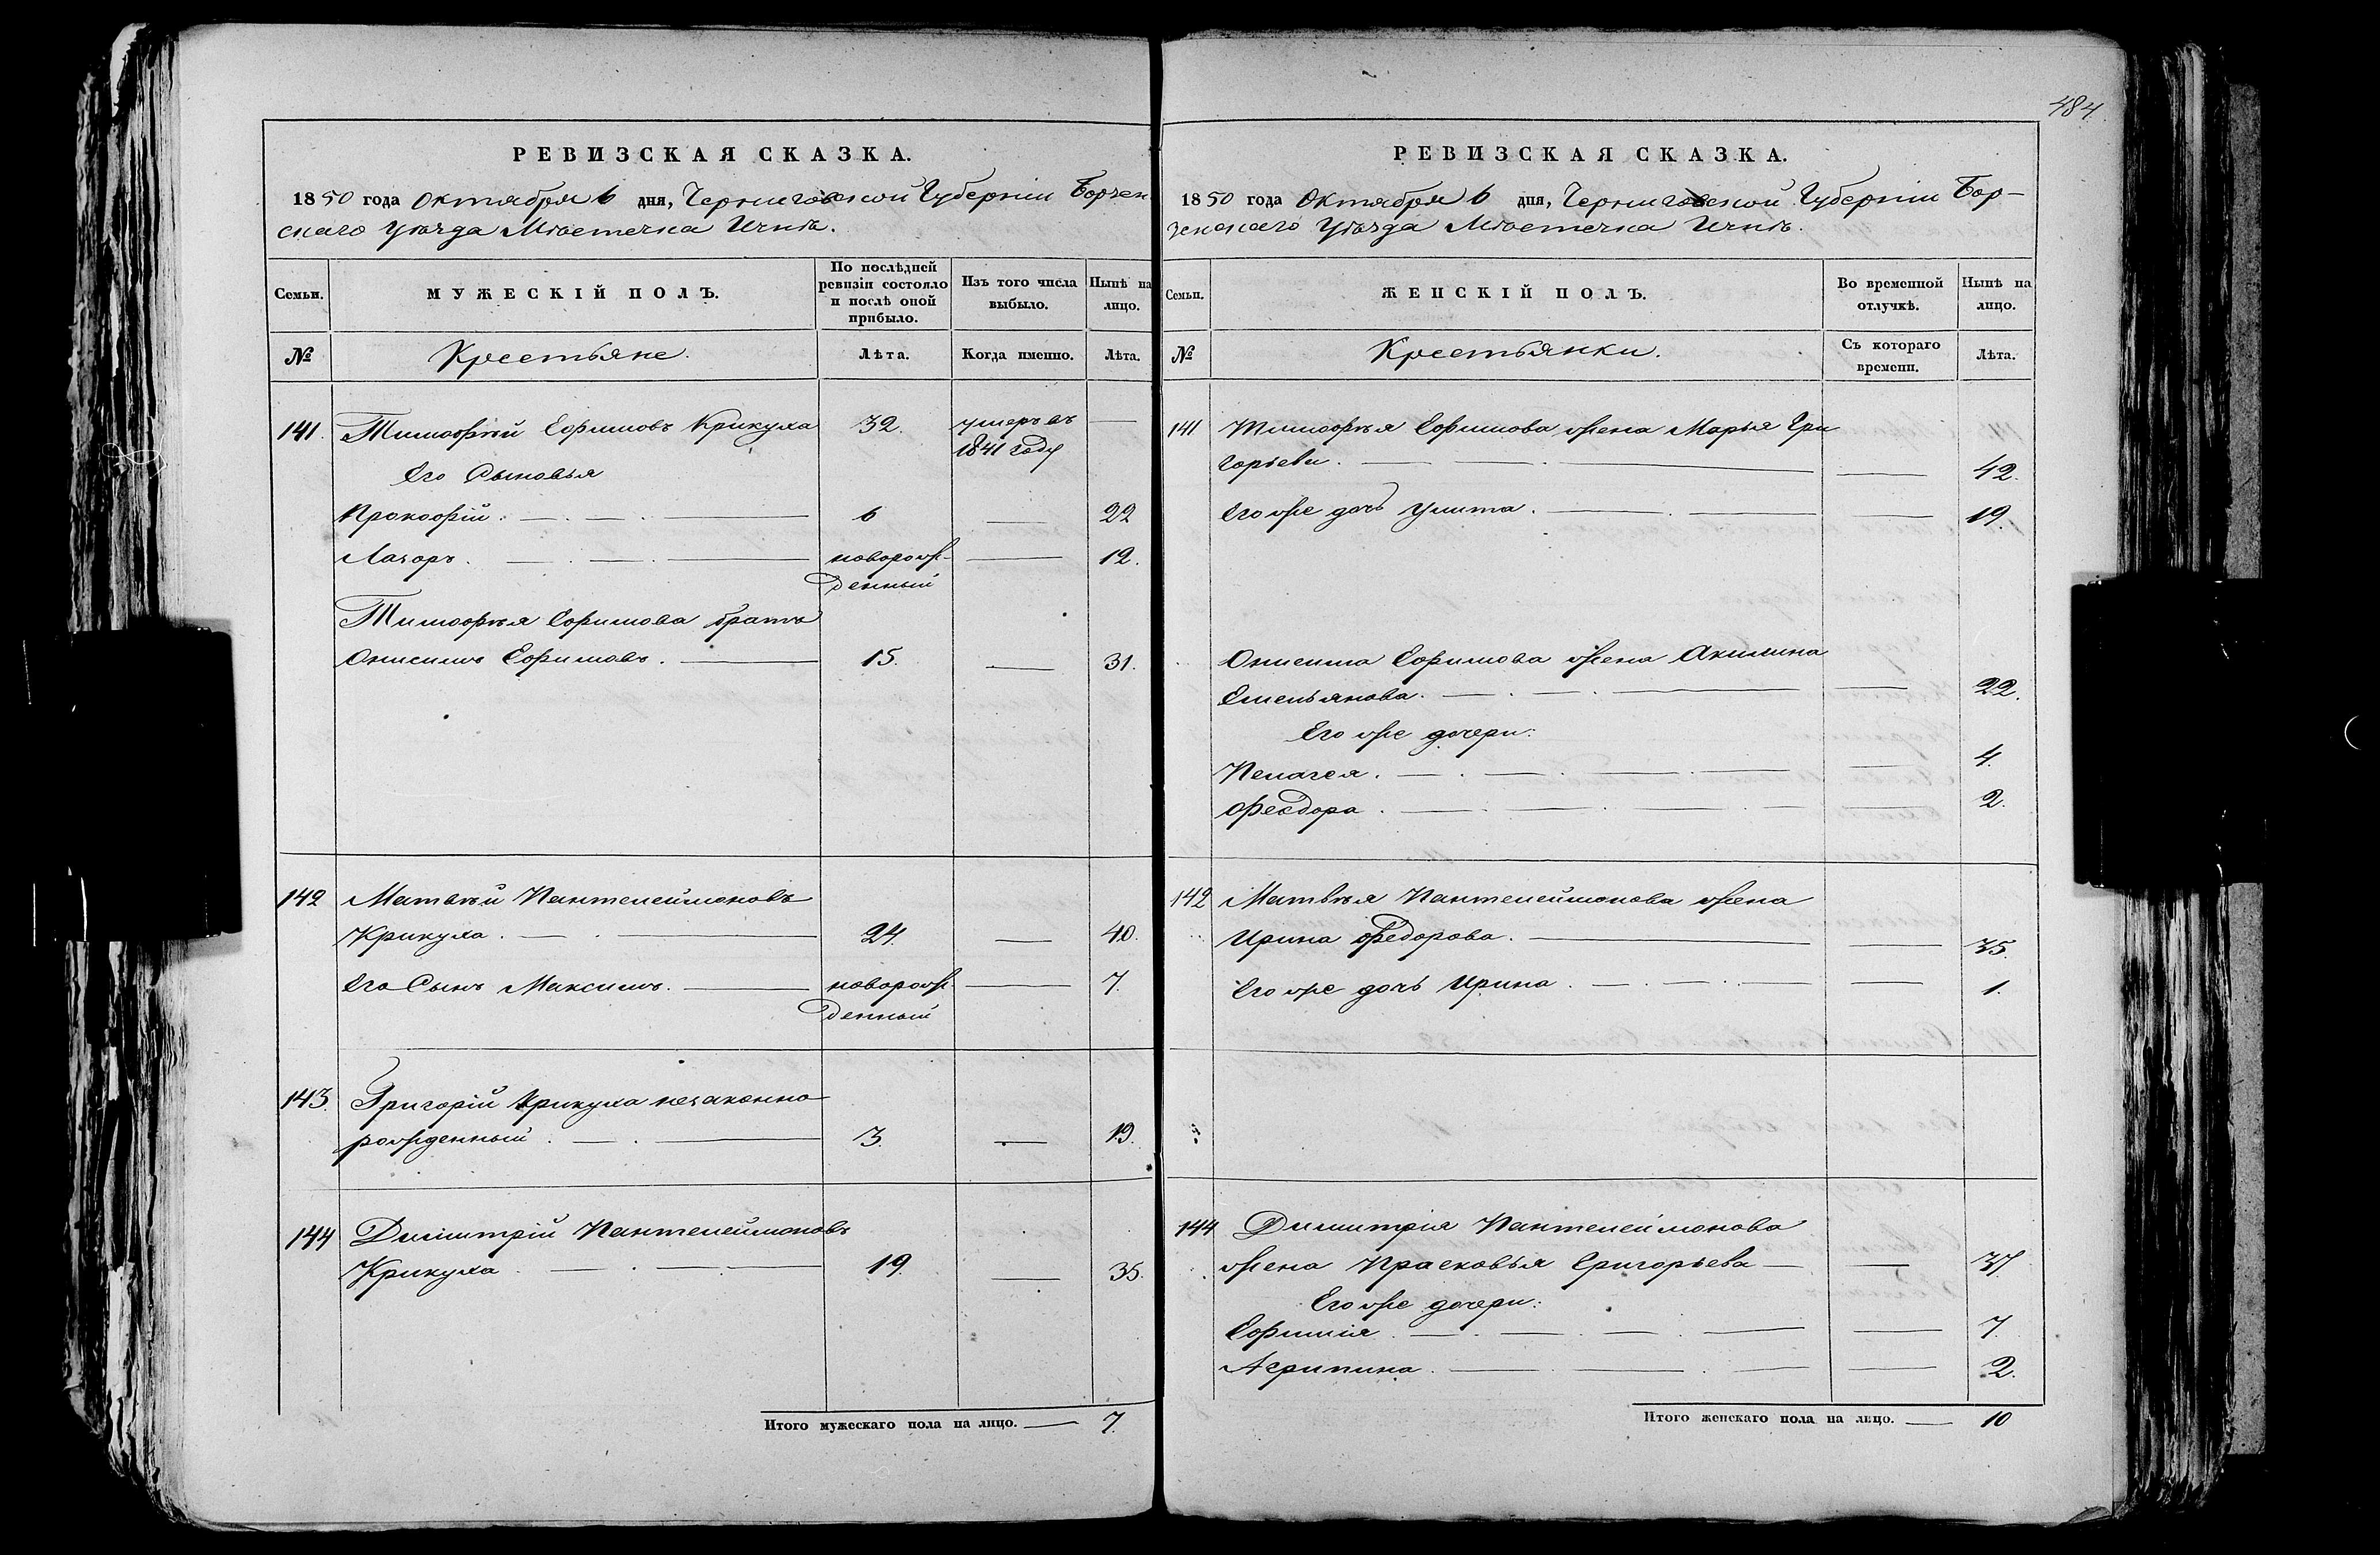 РЕВИЗСКАЯ СКАЗКА.
1850 года Октября 6 дня, Черниговской Губерніи Борзен
скаго Уѣзда Мѣстечка Ични.
Семьи.
МУЖЕСКІЙ ПОЛЪ.
По послѣдней
ревизіи состояло
и послѣ оной
прибыло.
Изъ того числа
выбыло.
Нынѣ на
лицо.
№
Крестьяне.
Лѣта.
Когда именно.
Лѣта.
141. Тимофѣй Ефимовъ Крикуха 32. умеръ въ —
1841 году
Его Сыновья
Прокофій. — 6 — 22
Лазоръ. — новорож- — 12.
денный
Тимофѣя Ефимова братъ
Онисимъ Ефимовъ. — 15. — 31.
142 Матвѣй Пантелеймоновъ
Крикуха. — 24. — 40.
Его Сынъ Максимъ. — новорож- — 7.
денный
143. Григорій Крикуха незаконно
рожденный. — 3. — 19.
144 Димитрій Пантелеймоновъ
Крикуха. — 19. — 35.
Итого мужескаго пола на лицо. — 7.
484.
РЕВИЗСКАЯ СКАЗКА.
1850 года Октября 6 дня, Черниговской Губерніи Бор-
зенскаго Уѣзда Мѣстечка Ични.
Семьи.
ЖЕНСКІЙ ПОЛЪ.
Во временной
отлучкѣ.
Нынѣ на
лицо.
№
Крестьянки.
Съ котораго
времени.
Лѣта.
141 Тимофѣя Ефимова жена Марья Гри
горьева. — — 42.
Его же дочь Улита. — — 19.
Онисима Ефимова жена Акилина
Емельянова. — — 22.
Его же дочери:
Пелагея. — — 4.
Феодора. — — 2.
142 Матвѣя Пантелеймонова жена
Ирина Федорова. — — 35.
Его же дочь Ирина. — — 1.
144 Димитрія Пантелеймонова
жена Прасковья Григорьева — — 37.
Его же дочери:
Ефимія. — — 7.
Агрипина. — — 2.
Итого женскаго пола на лицо. — 10